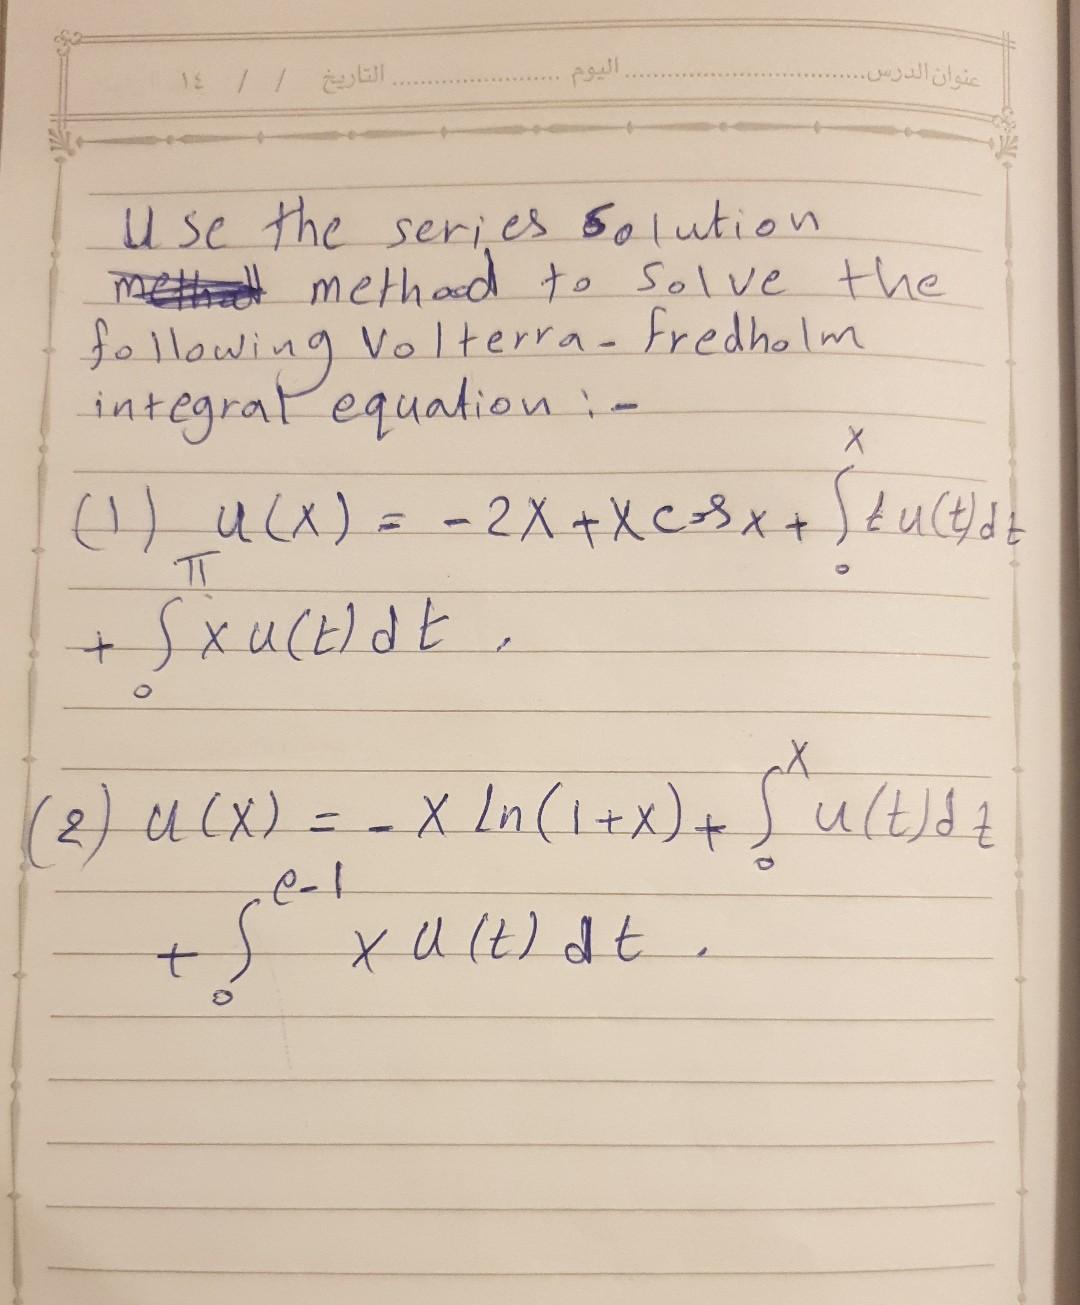 عنوان الدرس ........................ اليوم .................. التاريخ / / ١٤
Use the series Solution
method to solve the
following Volterra - Fredholm
integral equation :-
(1) u(x) = -2x + x cos x + ∫₀ˣ t u(t) dt
+ ∫₀^π x u(t) dt .
(2) u(x) = - x ln(1+x) + ∫₀ˣ u(t) dt
+ ∫₀^(e-1) x u(t) dt .